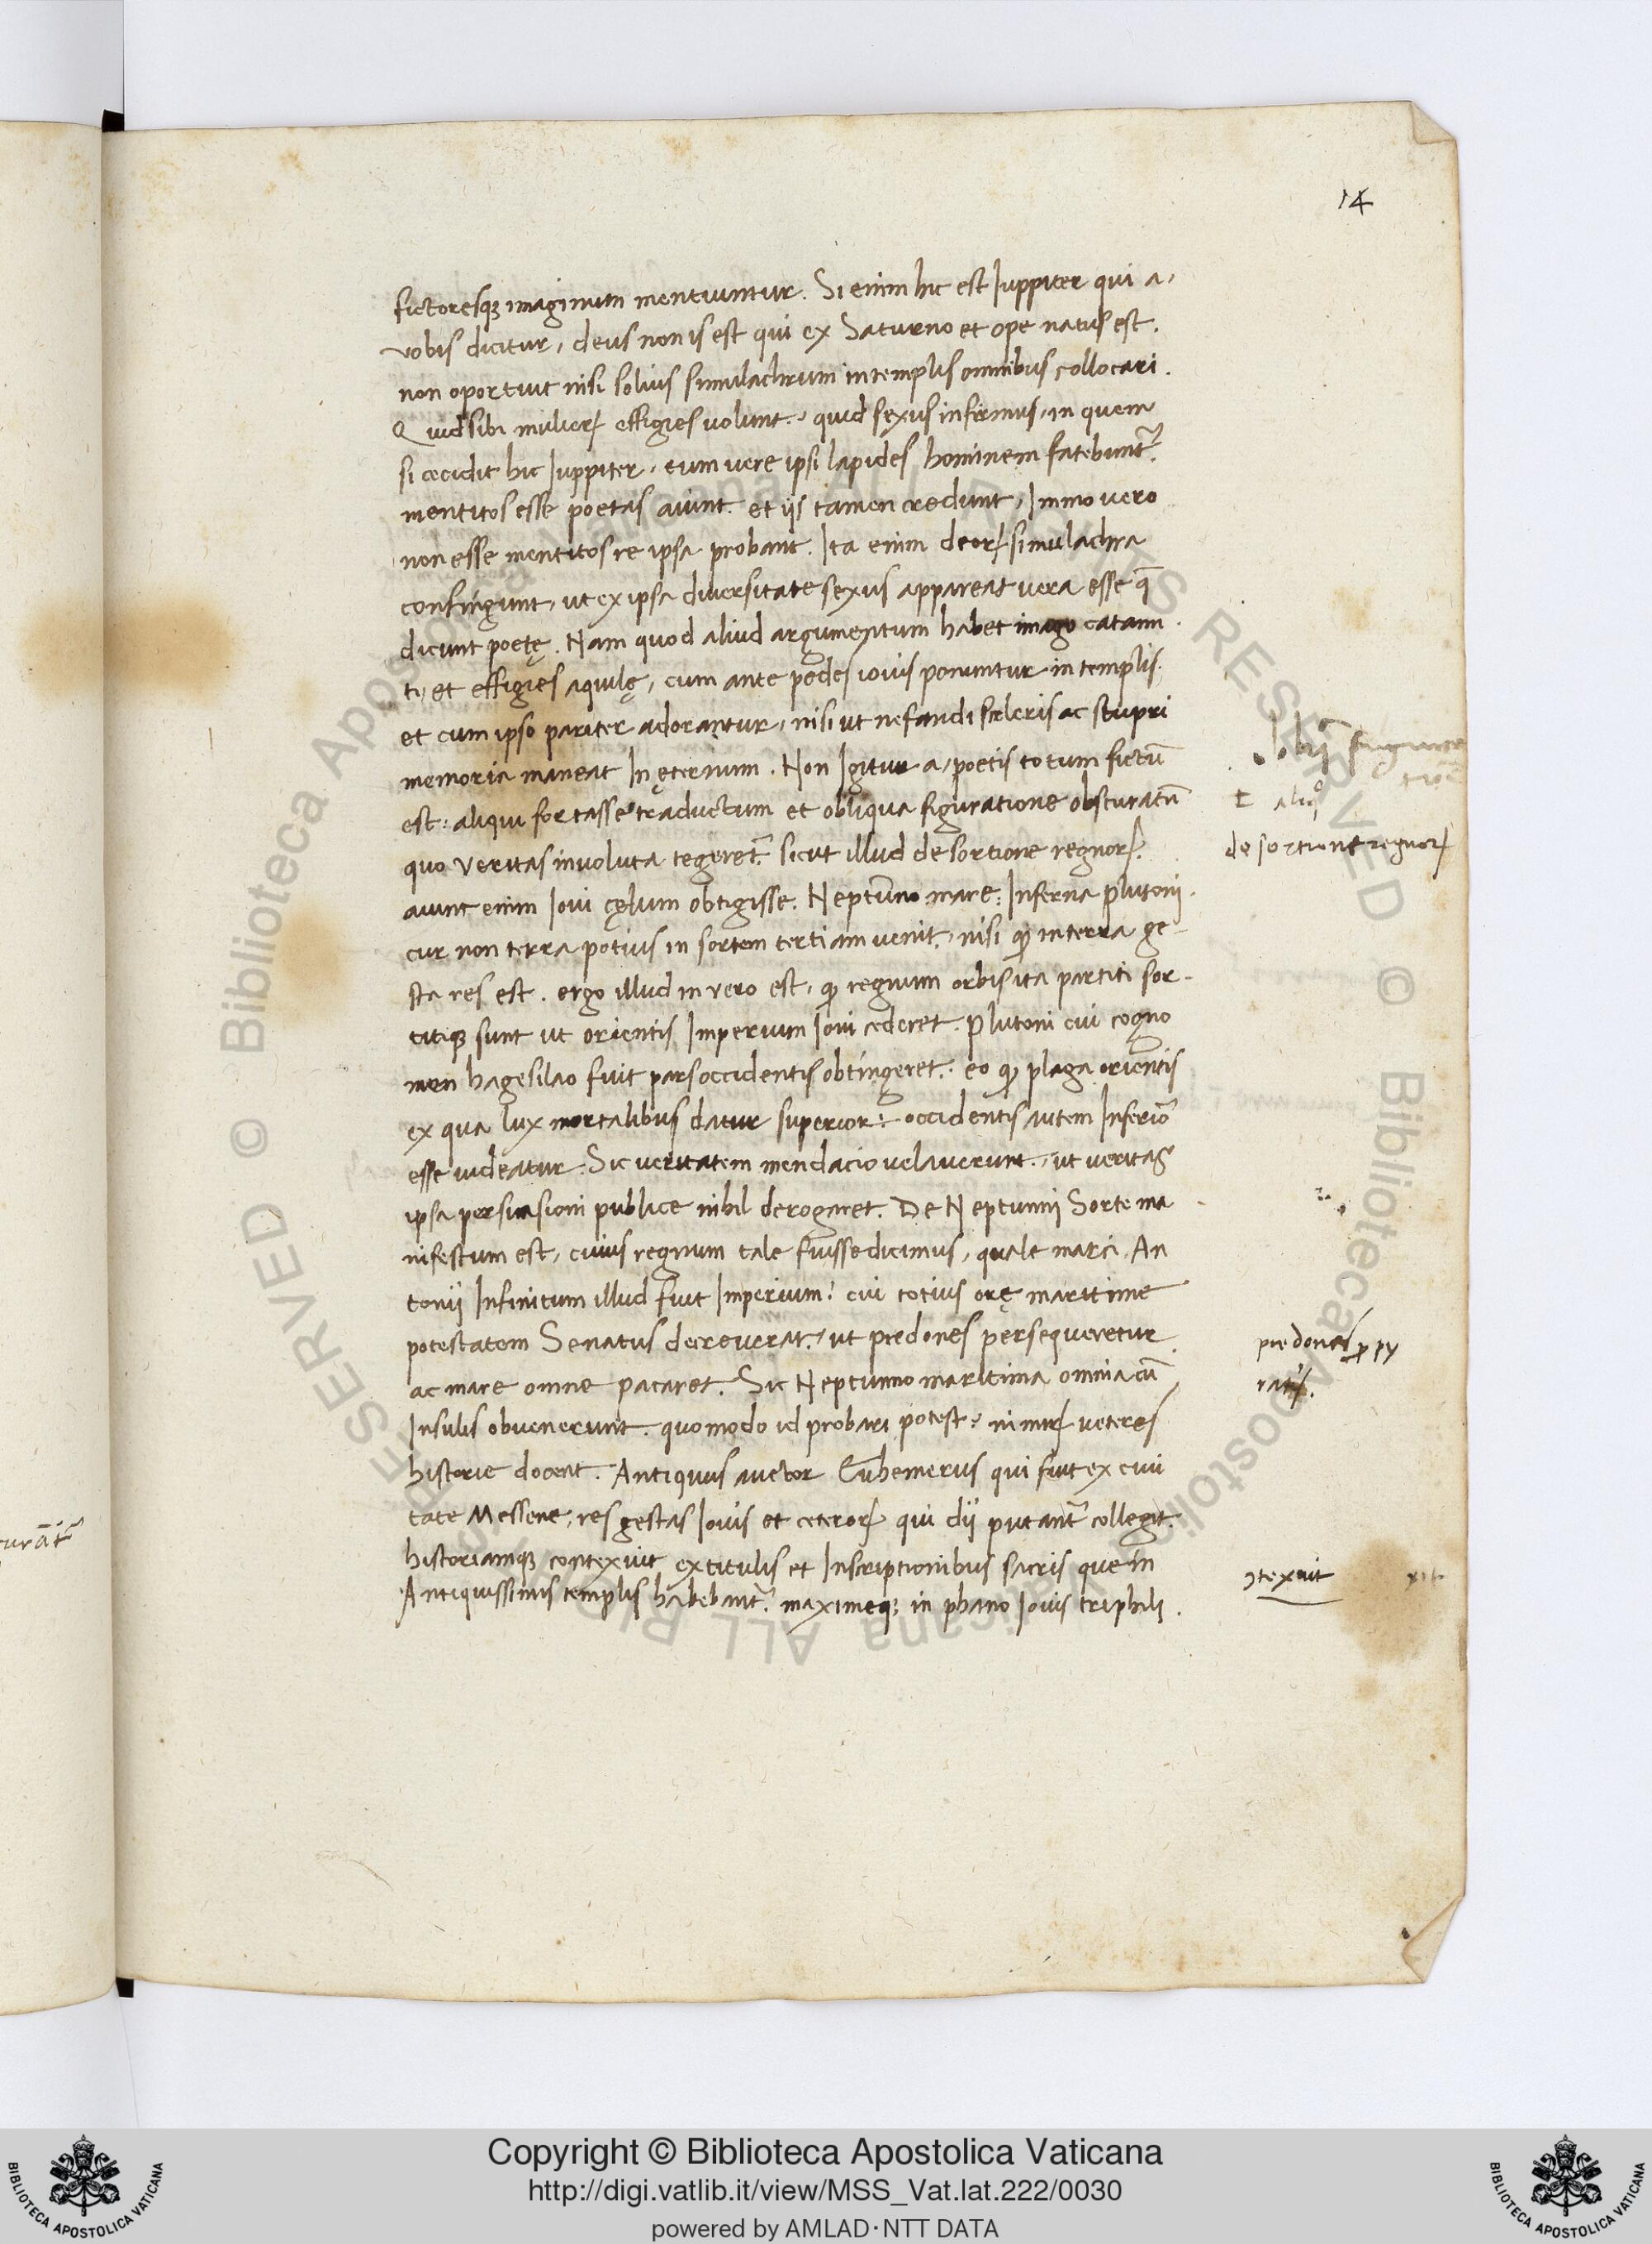 14
fictoresq; imaginum mentiuntur. Si enim hic est Iuppiter qui a,
vobis dicitur, deus non is est qui ex Saturno et ope natus est.
non oportuit nisi solius simulachrum in templis omnibus collocari.
Quid sibi mulierꝝ effigies uolunt. quid sexus infirmus, in quem
si cecidit hic Iuppiter, eum uere ipsi lapides hominem fatebunt᷑.
mentitos esse poetas aiunt. et iis tamen credunt, Immo uero
non esse mentitos re ipsa probant. Ita enim deorꝝ simulachra
confingunt, ut ex ipsa diuersitate sexus appareat uera esse q̄
dicunt poetę. Nam quod aliud argumentum habet imago catami
ti, et effigies aquilę, cum ante pedes iouis ponuntur in templis.
et cum ipso pariter adorantur, nisi ut nefandi sceleris ac stupri
memoria maneat In ęternum. Non Igitur a, poetis totum fictū
est: aliqui fortasse traductum et obliqua figuratione obscuratū
quo veritas inuoluta tegeret᷑. sicut illud de sortione regnorꝝ.
aiunt enim Ioui cęlum obtigisse. Neptunno mare: Inferna plutoni.
cur non terra potius in sortem tertiam uenit, nisi ꝙ in terra ge-
sta res est. ergo illud in vero est, ꝙ regnum orbis ita partiti sor-
titiq; sunt ut orientis Imperium Ioui cederet. Plutoni cui cogno
men hagesilao fuit pars occidentis obtingeret. eo ꝙ plaga orientis
ex qua lux mortalibus datur superior: occidentis autem Inferiō
esse uideatur. Sic ueritatem mendacio uelauerunt. ut veritas
ipsa persuasioni publice nihil derogaret. De Neptunni Sorte ma
nifestum est, cuius regnum tale fuisse dicimus, quale marci An
tonii Infinitum illud fuit Imperium: cui totius orę maritime
potestatem Senatus decreuerat, ut predones persequeretur
ac mare omne pacaret. Sic Neptunno maritima omnia cū
Insulis obuenerunt. quomodo id probari potest: nimirꝝ ueteres
historie docent. Antiquus auctor Euhemerus qui fuit ex ciui
tate Messene, res gestas Iouis et ceterorꝝ qui dii putant᷑ collegit.
historiamq; contexuit ex titulis et Inscriptionibus sacris que in
Antiquissimis templis habebant᷑. maximeq; in phano Iouis triphili.
de sortione regnorꝝ
predones ꝓ py
ratis.
ɔtexuit